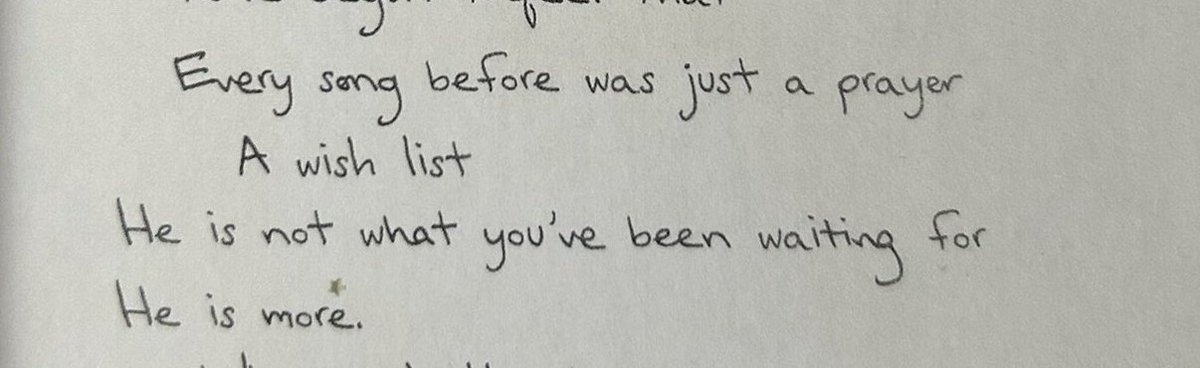 Every song before was just a prayer
A wish list
He is not what you've been waiting for
He is more.